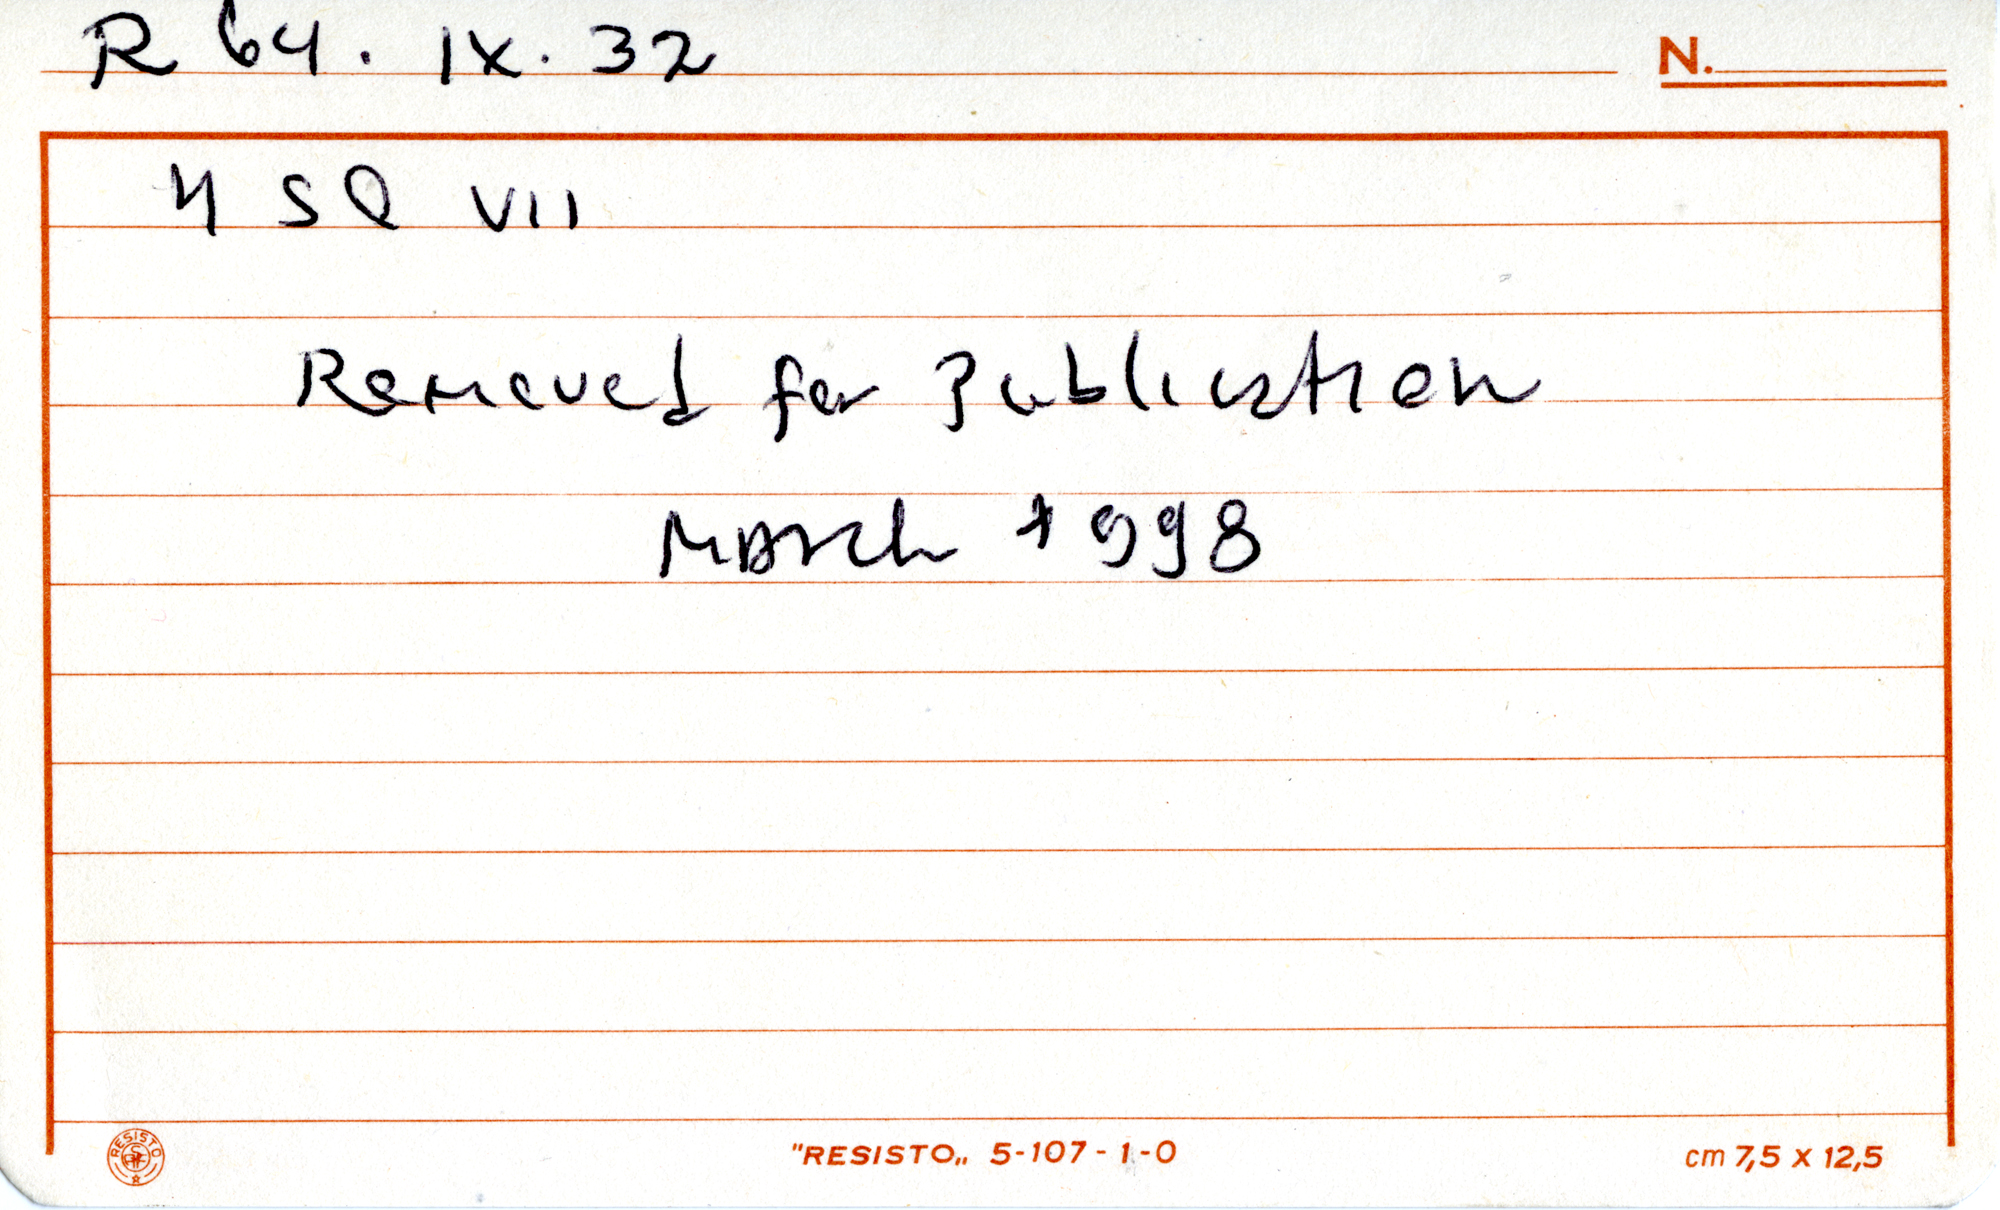 R 64. IX. 32
N.
4 SQ VII
Removed for Publication
March 1998
RESISTO
"RESISTO„ 5-107-1-0
cm 7,5 x 12,5